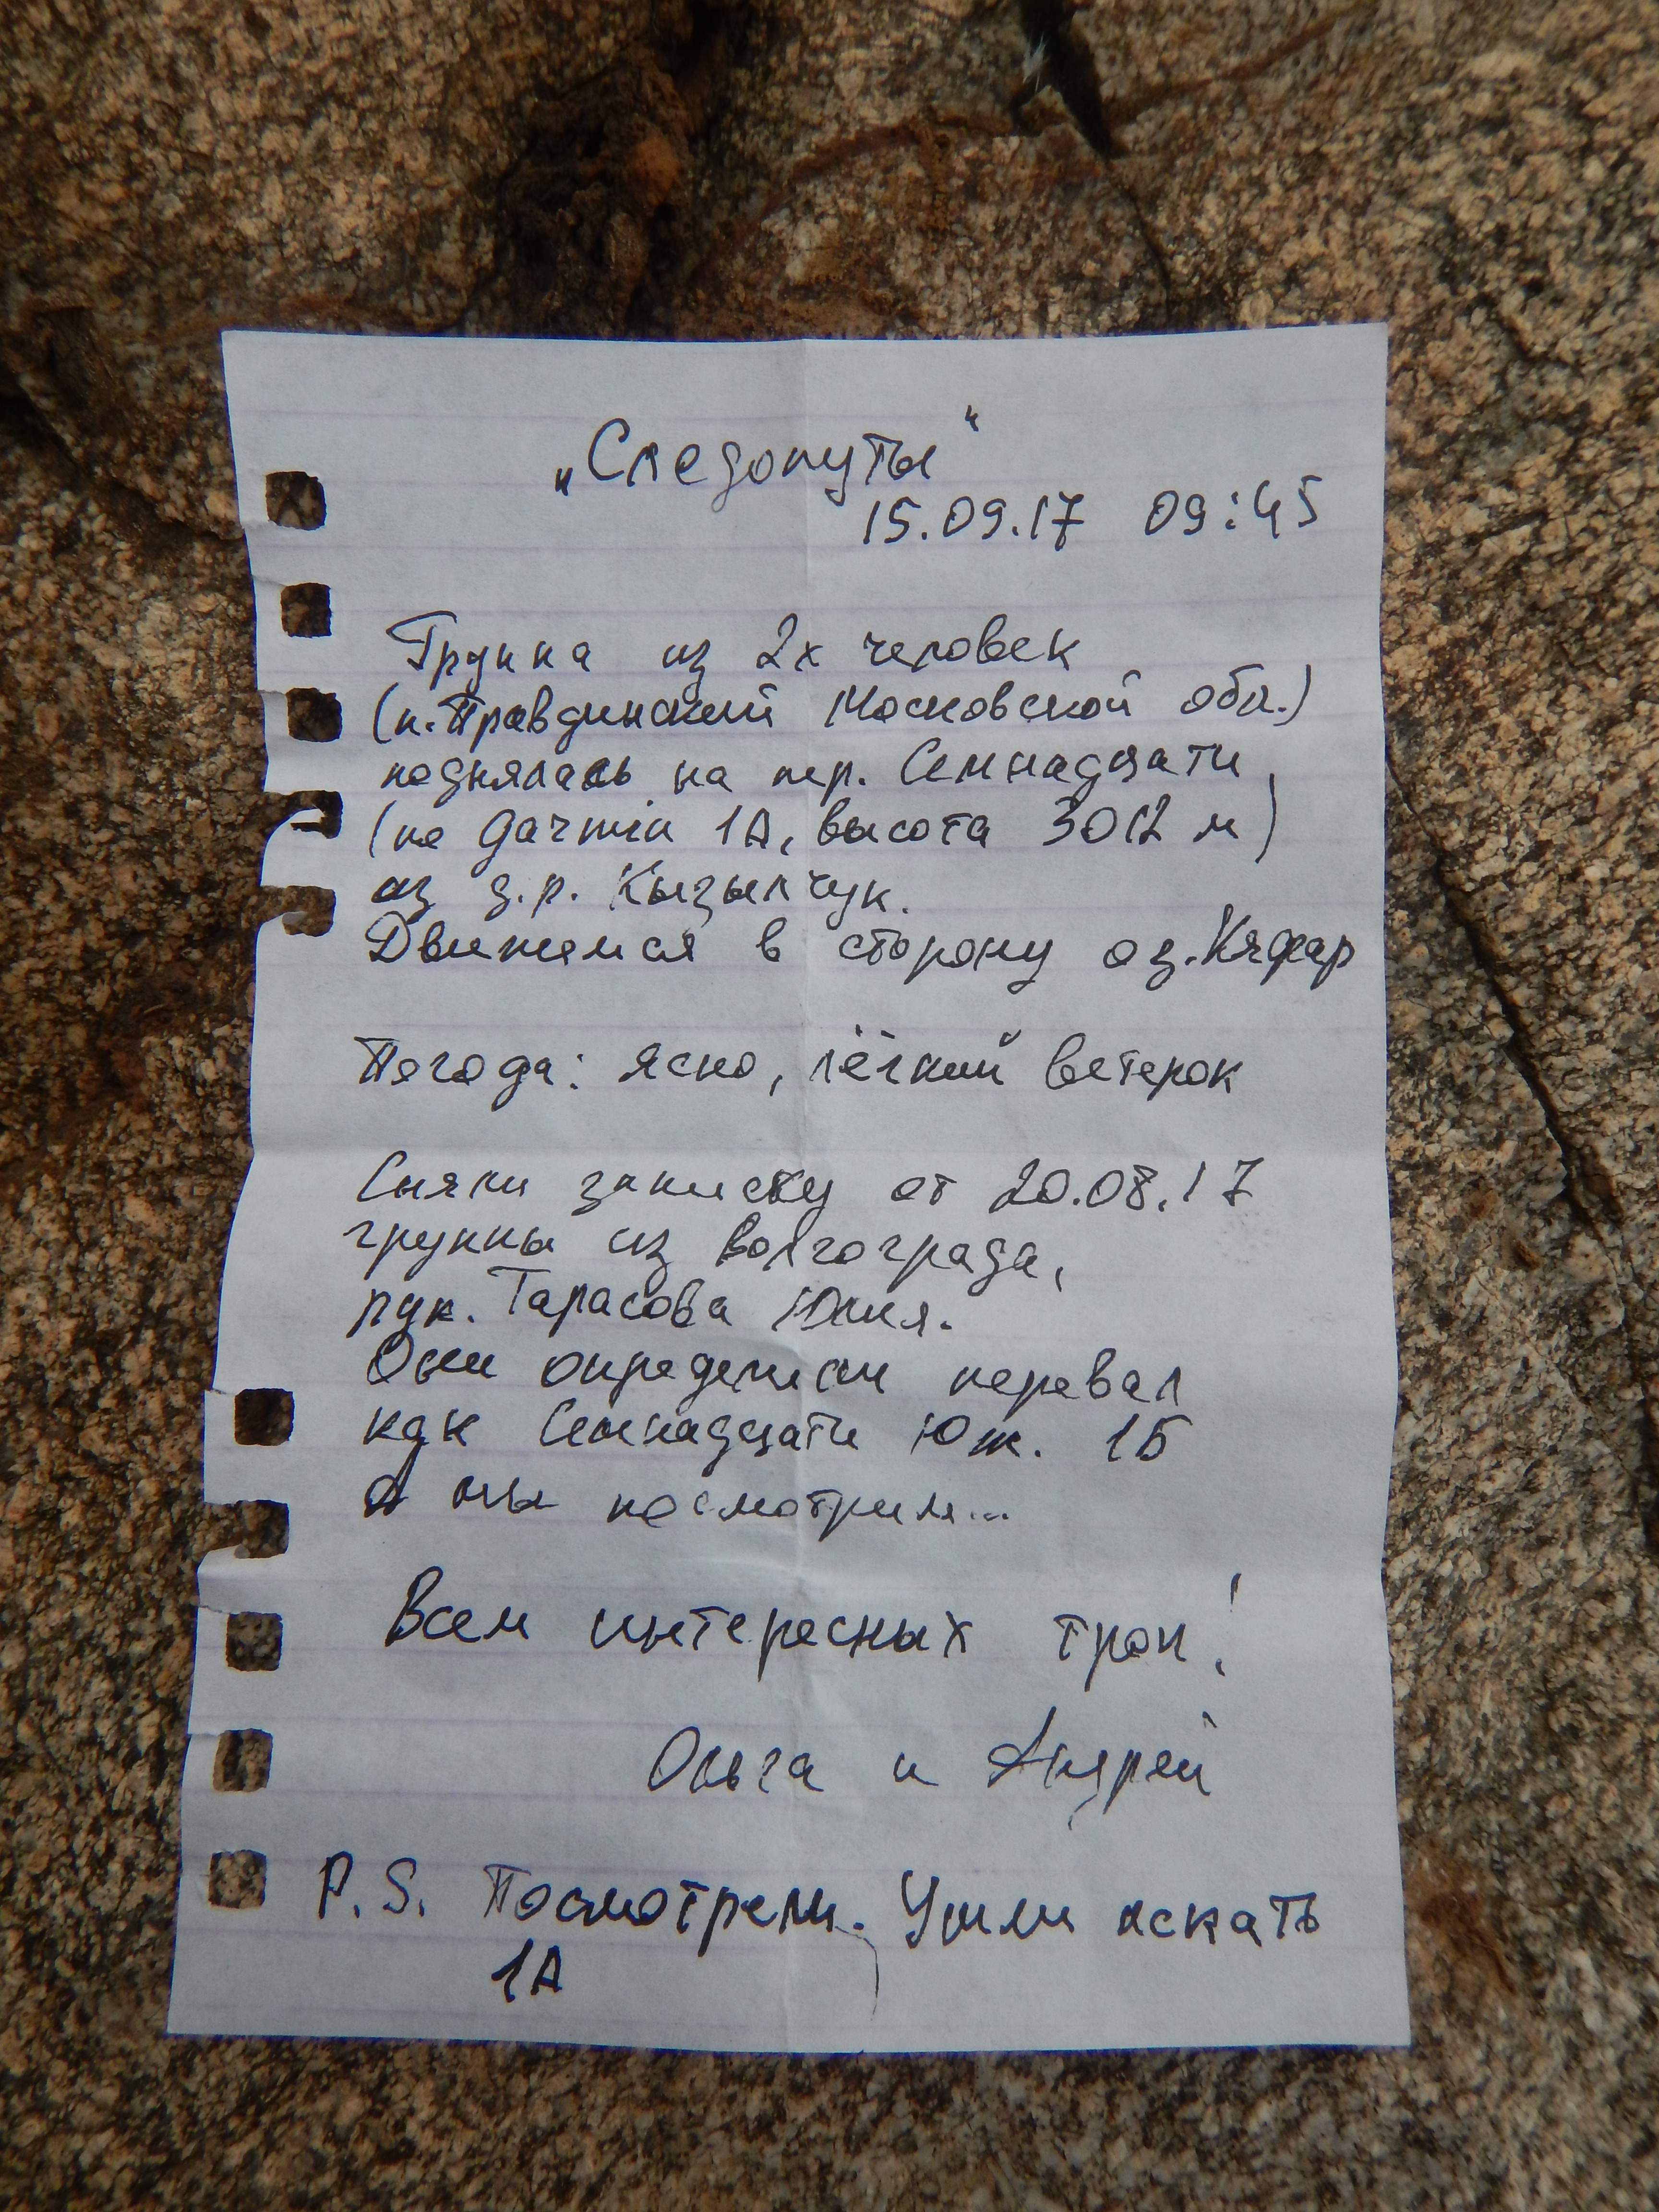 „Следопуты"
15.09.17 09:45
Группа из 2х человек
(п. Правдинский Московской обл.)
поднялась на пер. Семнадцати
(по 1А, высота 3012 м)
из д.р. Кызылчук.
Движемся в сторону оз. Кяфар
Погода: ясно, лёгкий ветерок
Сняли записку от 20.08.17
группы из Волгограда,
рук. Тарасова Юлия.
Они определили перевал
как Семнадцати Юж. 1Б
А мы посмотрим...
Всем интересных троп!
Ольга и Андрей
P.S. Посмотрели. Ушли искать
1А